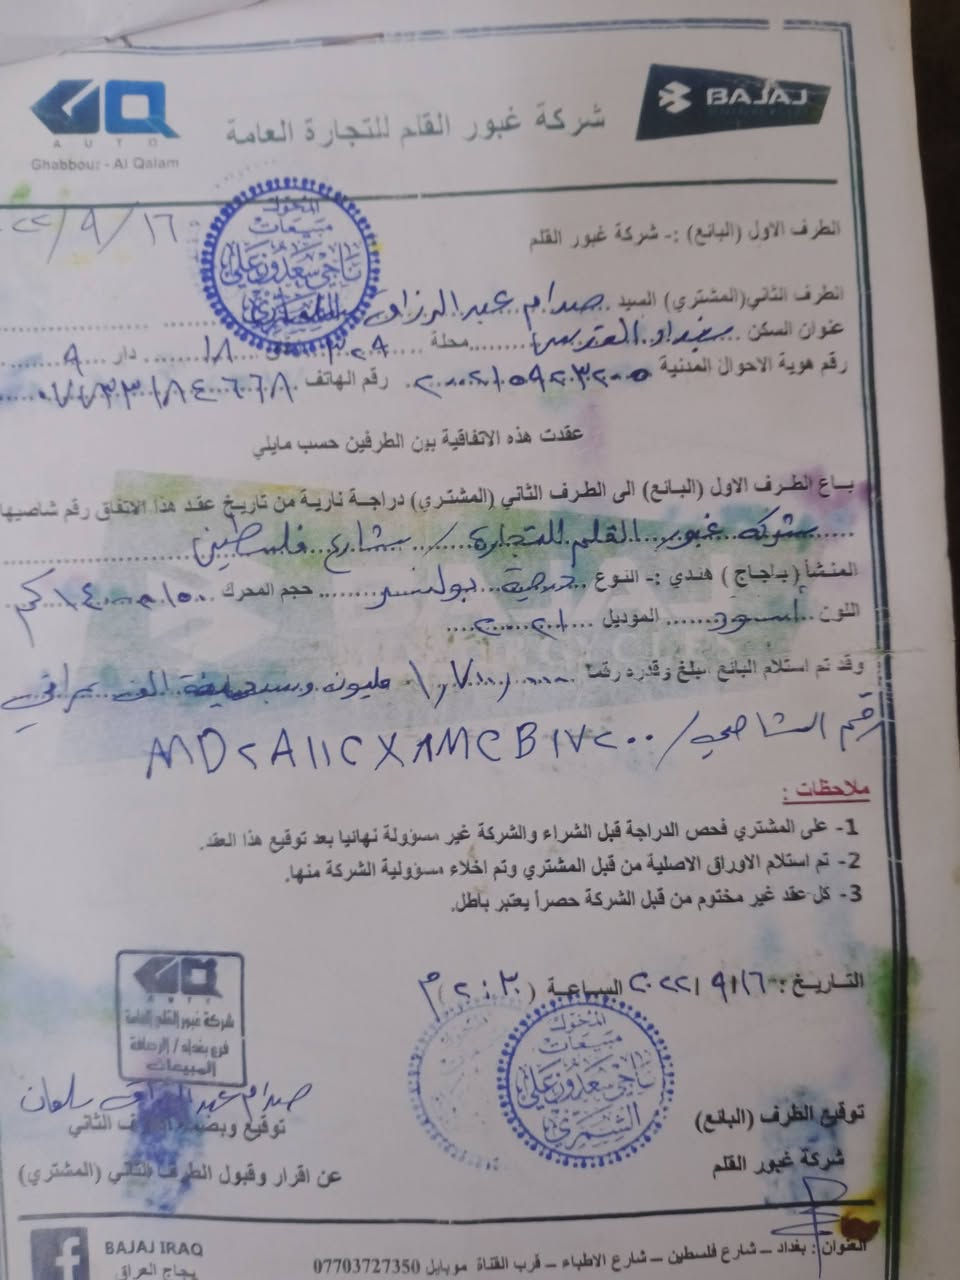 BAJAJ
شركة غبور القلم للتجارة العامة
AUTO
Ghabbour - Al Qalam
٢٢/٩/١٦
المخول
مبيعات
ناجي سعدون علي
الطرف الاول (البائع) :- شركة غبور القلم
الطرف الثاني(المشتري) السيد صدام عبد الرزاق
عنوان السكن بغداد القدس محلة ٣٠٩ ١٨ دار ٩
رقم هوية الاحوال المدنية ٢٠٠٢١٥٩٢٣٢٠٠٥ رقم الهاتف ٠٧٧٣٣١٨٤٦٦٨
عقدت هذه الاتفاقية بين الطرفين حسب مايلي
باع الطرف الاول (البائع) الى الطرف الثاني (المشتري) دراجة نارية من تاريخ عقد هذا الاتفاق رقم شاصيها
شركة غبور القلم للتجارة / شارع فلسطين
المنشأ ( باجاج ) هندي :- النوع بولنسر حجم المحرك ١٥٠
اللون اسود الموديل ٢٠٢١
وقد تم استلام البائع مبلغ وقدره رقما ١,٧٠٠,٠٠٠ مليون وسبعمائة الف عراقي
رقم الشاصي / MD٢A١١CX٨MCB١٧٢٠٠
ملاحظات :
1- على المشتري فحص الدراجة قبل الشراء والشركة غير مسؤولة نهائيا بعد توقيع هذا العقد.
2- تم استلام الاوراق الاصلية من قبل المشتري وتم اخلاء مسؤولية الشركة منها.
3- كل عقد غير مختوم من قبل الشركة حصراً يعتبر باطل.
التاريخ : ٢٠٢٢/٩/١٦ الساعة (٢:٣٠) م
AUTO
شركة غبور القلم العامة
فرع بغداد / الرصافة
المبيعات
المخول
مبيعات
ناجي سعدون علي
الشمري
صدام عبد الرزاق سلمان
توقيع الطرف (البائع)
توقيع وبصمة الطرف الثاني
شركة غبور القلم
عن اقرار وقبول الطرف الثاني (المشتري)
العنوان : بغداد – شارع فلسطين – شارع الاطباء – قرب القناة موبايل 07703727350
BAJAJ IRAQ
بجاج العراق